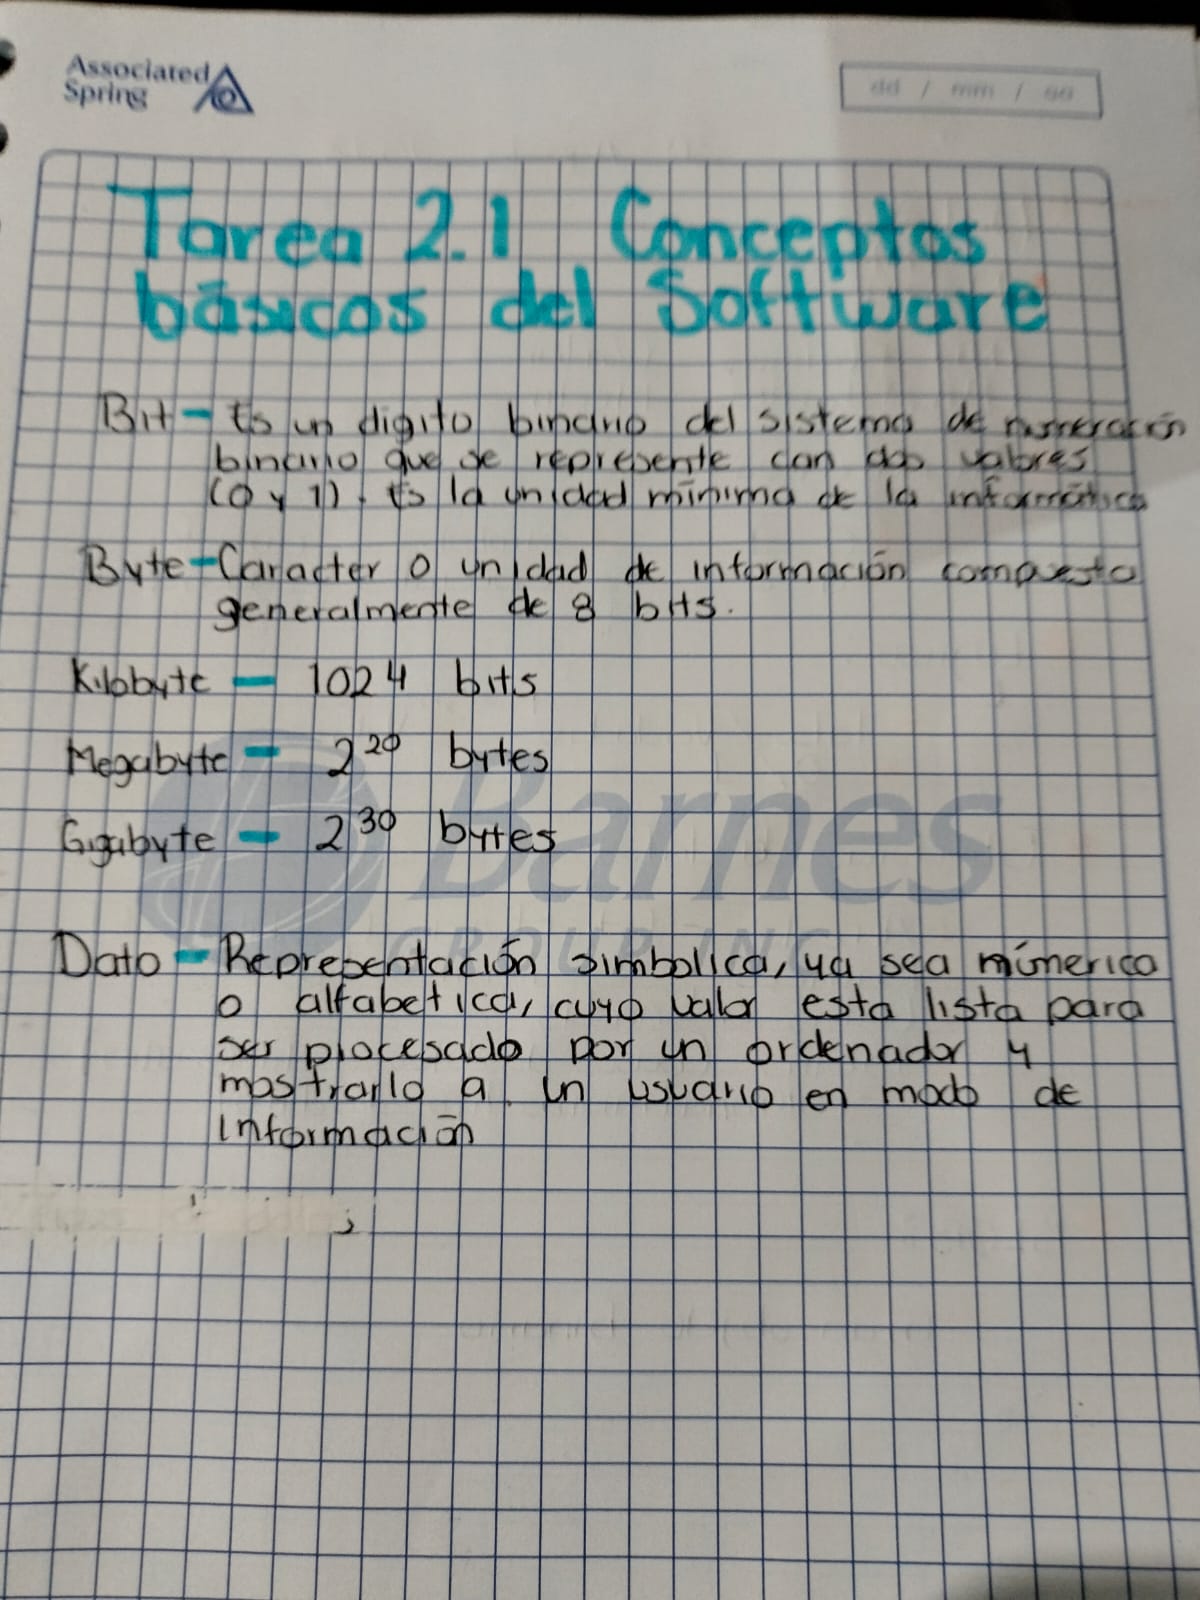 Associated
Spring
dd / mm / aa
Tarea 2.1 Conceptos
básicos del Software
Bit - Es un digito binario del sistema de numeración
binario que se represente con dos valores
(0 y 1). Es la unidad mínima de la informática
Byte - Caracter o unidad de información compuesta
generalmente de 8 bits.
Kilobyte - 1024 bits
Megabyte - 2^20 bytes
Gigabyte - 2^30 bytes
Barnes
GROUP INC
Dato - Representación simbolica, ya sea númerica
o alfabetica, cuyo valor esta lista para
ser procesado por un ordenador y
mostrarlo a un usuario en modo de
información